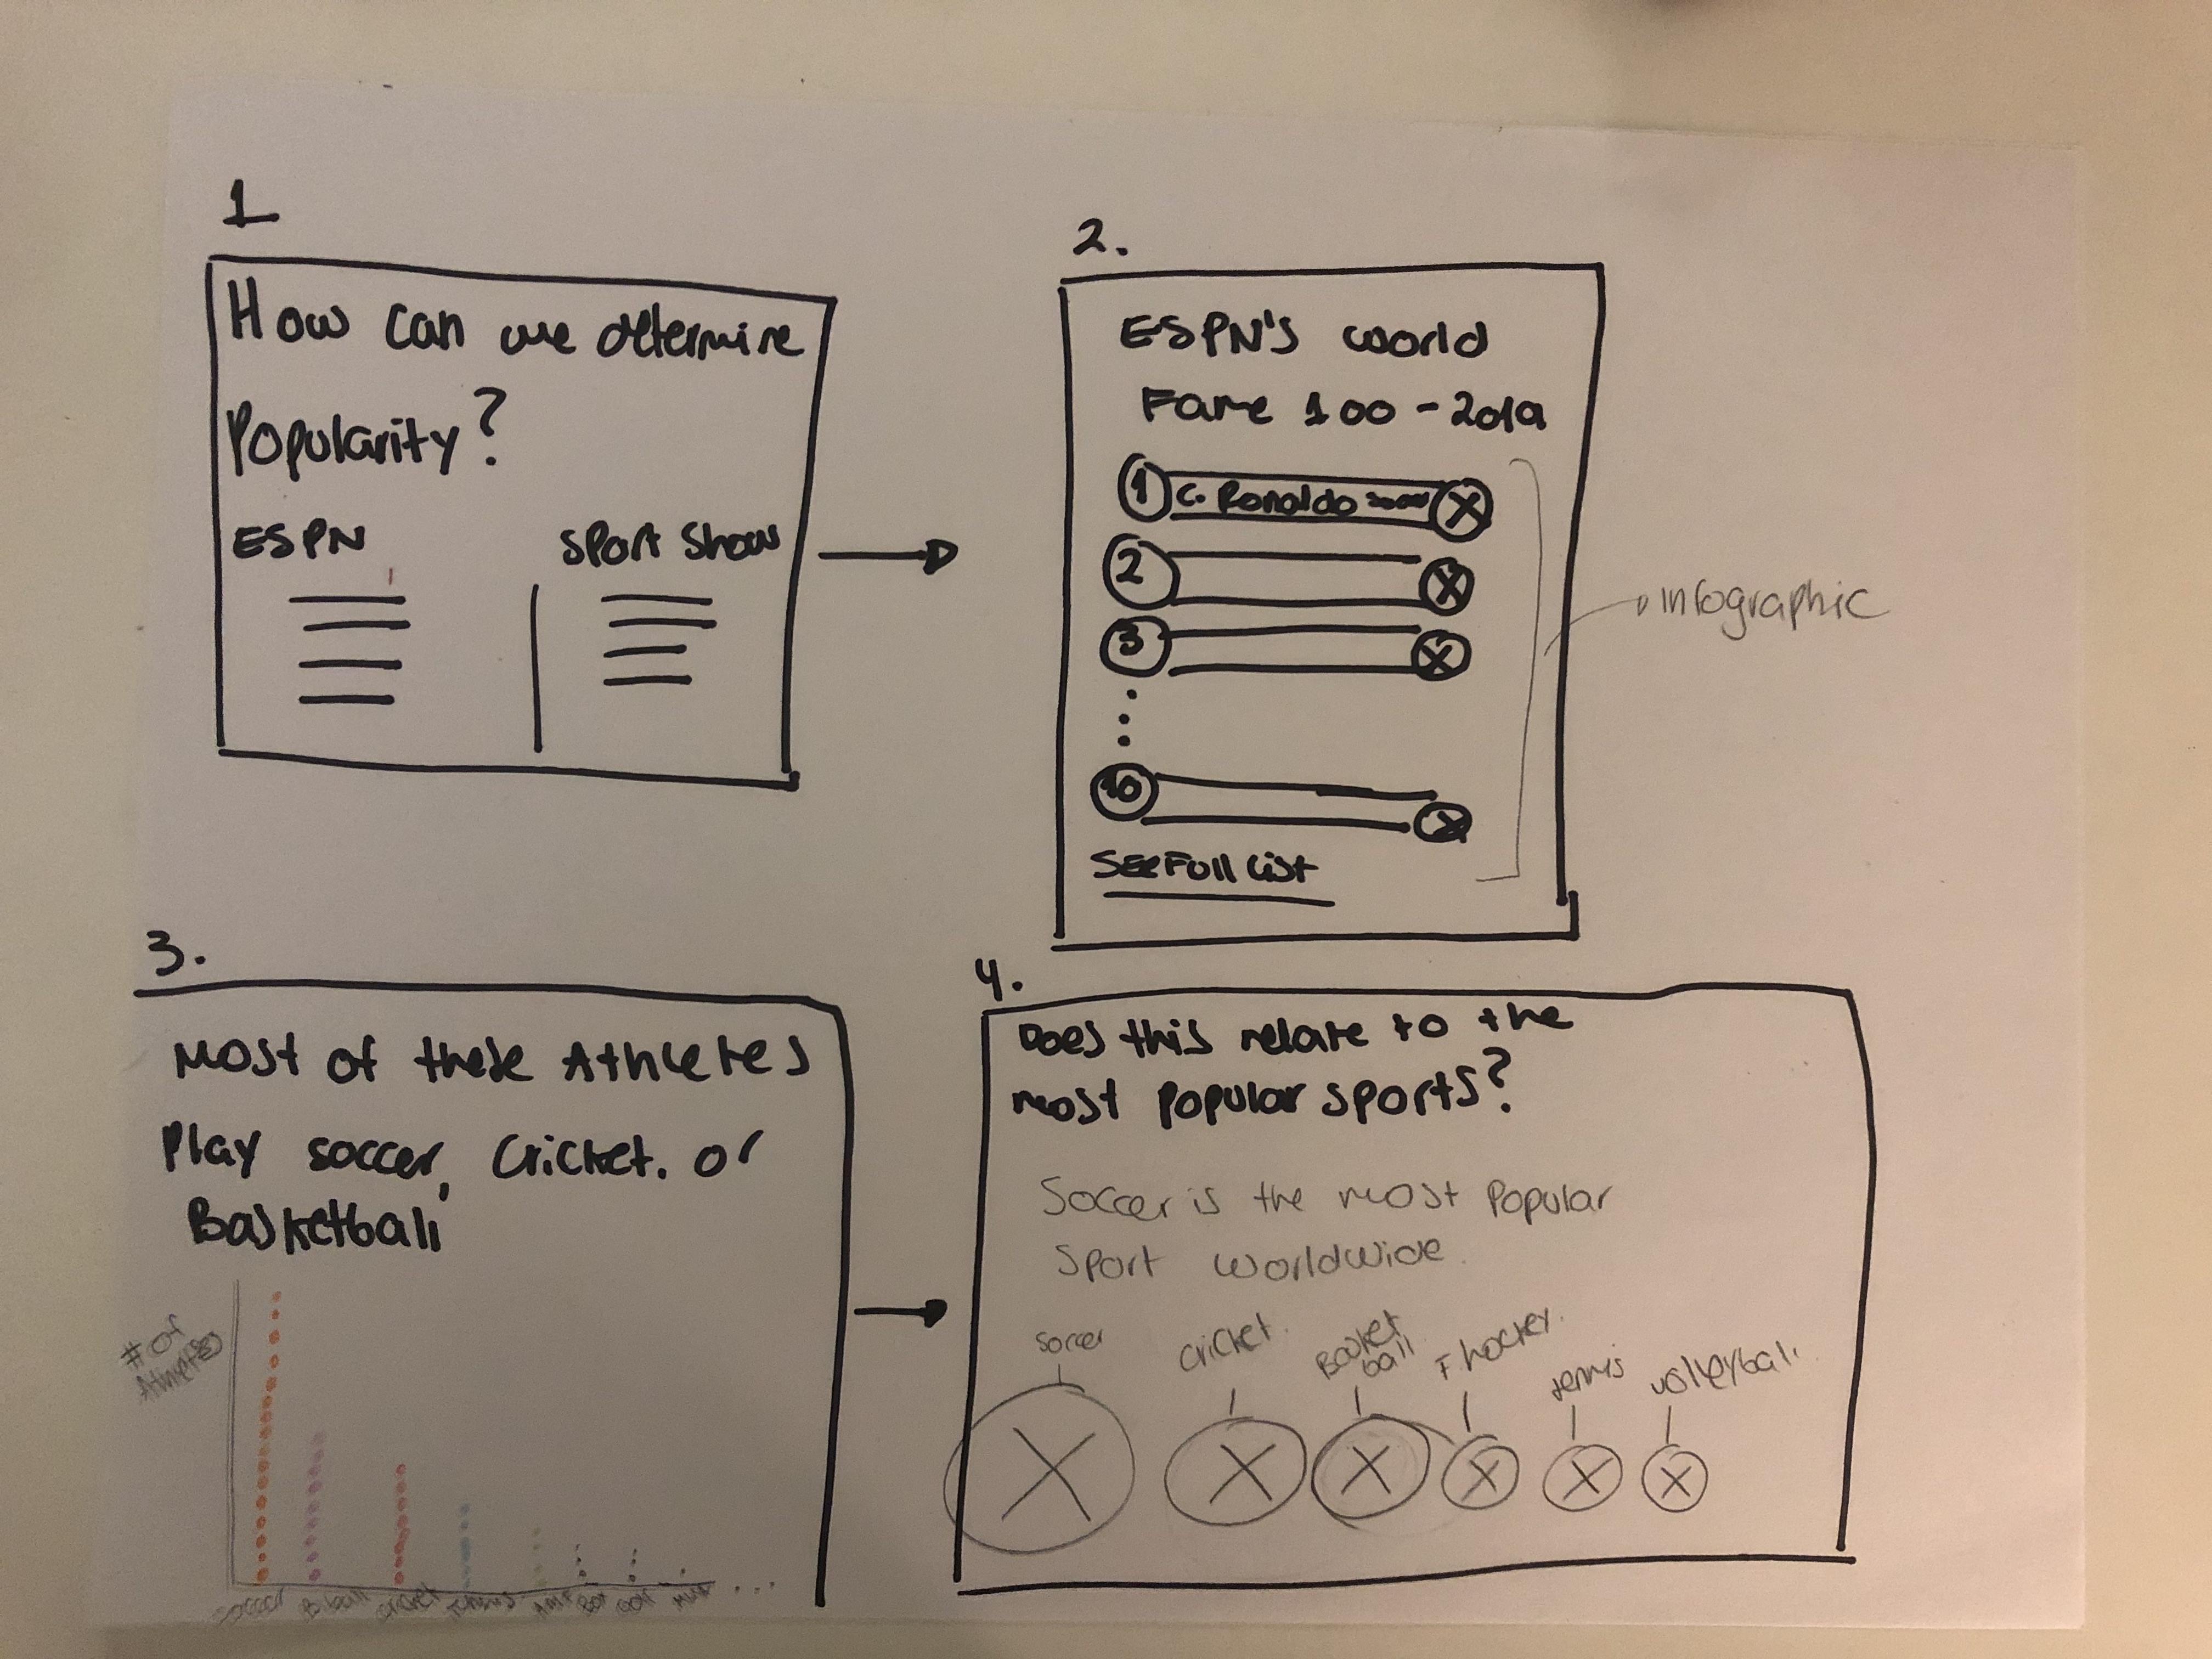 1
How can we determine
Popularity?
ESPN
Sport Show
2.
ESPN's world
Fame 100 - 2019
1 C. Ronaldo
2
3
10
See Full List
infographic
3.
Most of these Athletes
Play soccer, Cricket. or
Basketball
# of
Athletes
Soccer B ball Cricket Tennis Golf
...
4.
Does this relate to the
most popular sports?
Soccer is the most popular
Sport worldwide.
soccer
cricket.
Basket
ball
F hockey.
tennis
volleyball